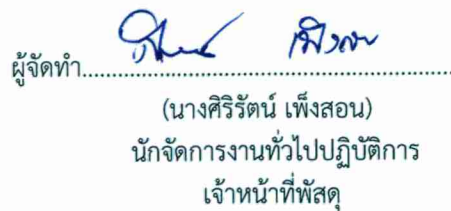 ผู้จัดทำ........................................................
(นางศิริรัตน์ เพ็งสอน)
นักจัดการงานทั่วไปปฏิบัติการ
เจ้าหน้าที่พัสดุ